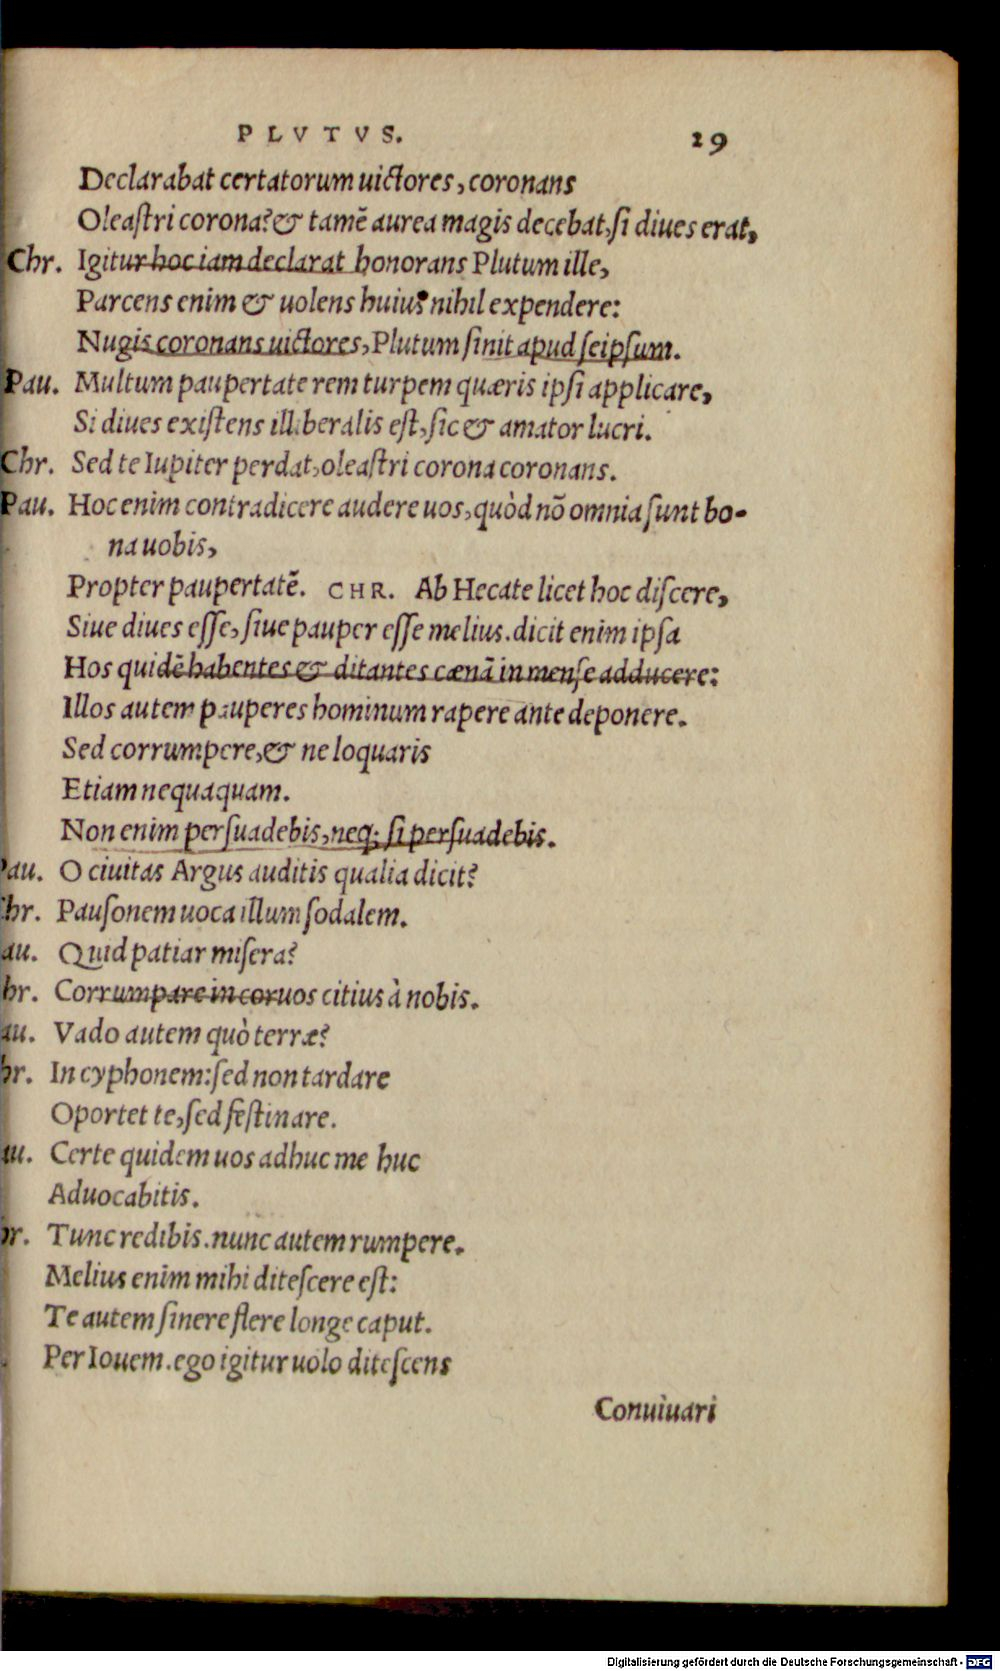 PLVTVS. 29
Declarabat certatorum uictores, coronans
Oleaſtri corona? & tamē aurea magis decebat, ſi diues erat,
Chr. Igitur hoc iam declarat honorans Plutum ille,
Parcens enim & uolens huius nihil expendere:
Nugis coronans uictores, Plutum ſinit apud ſeipſum.
Pau. Multum paupertate rem turpem quæris ipſi applicare,
Si diues exiſtens illiberalis eſt, ſic & amator lucri.
Chr. Sed te Iupiter perdat, oleaſtri corona coronans.
Pau. Hoc enim contradicere audere uos, quòd nō omnia ſunt bo-
na uobis,
Propter paupertatē. CHR. Ab Hecate licet hoc diſcere,
Siue diues eſſe, ſiue pauper eſſe melius. dicit enim ipſa
Hos quidē habentes & ditantes cænā in menſe adducere:
Illos autem pauperes hominum rapere ante deponere.
Sed corrumpere, & ne loquaris
Etiam nequaquam.
Non enim perſuadebis, neq; ſi perſuadebis.
Pau. O ciuitas Argus auditis qualia dicit?
Chr. Pauſonem uoca illum ſodalem.
au. Quid patiar miſera?
hr. Corrumpare in coruos citius à nobis.
au. Vado autem quò terræ?
hr. In cyphonem: ſed non tardare
Oportet te, ſed feſtinare.
au. Certe quidem uos adhuc me huc
Aduocabitis.
hr. Tunc redibis. nunc autem rumpere.
Melius enim mihi diteſcere eſt:
Te autem ſinere flere longe caput.
. Per Iouem. ego igitur uolo diteſcens
Conuiuari
Digitalisierung gefördert durch die Deutsche Forschungsgemeinschaft - DFG